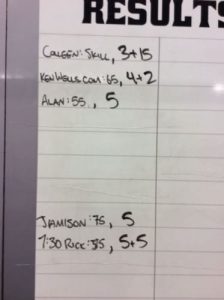 RESULTS
COLEEN: SKILL, 3+15
KENWELLS.COM: 65, 4+2
ALAN: 55, 5
JAMISON: 75, 5
7:30 RICK: 35, 5+5